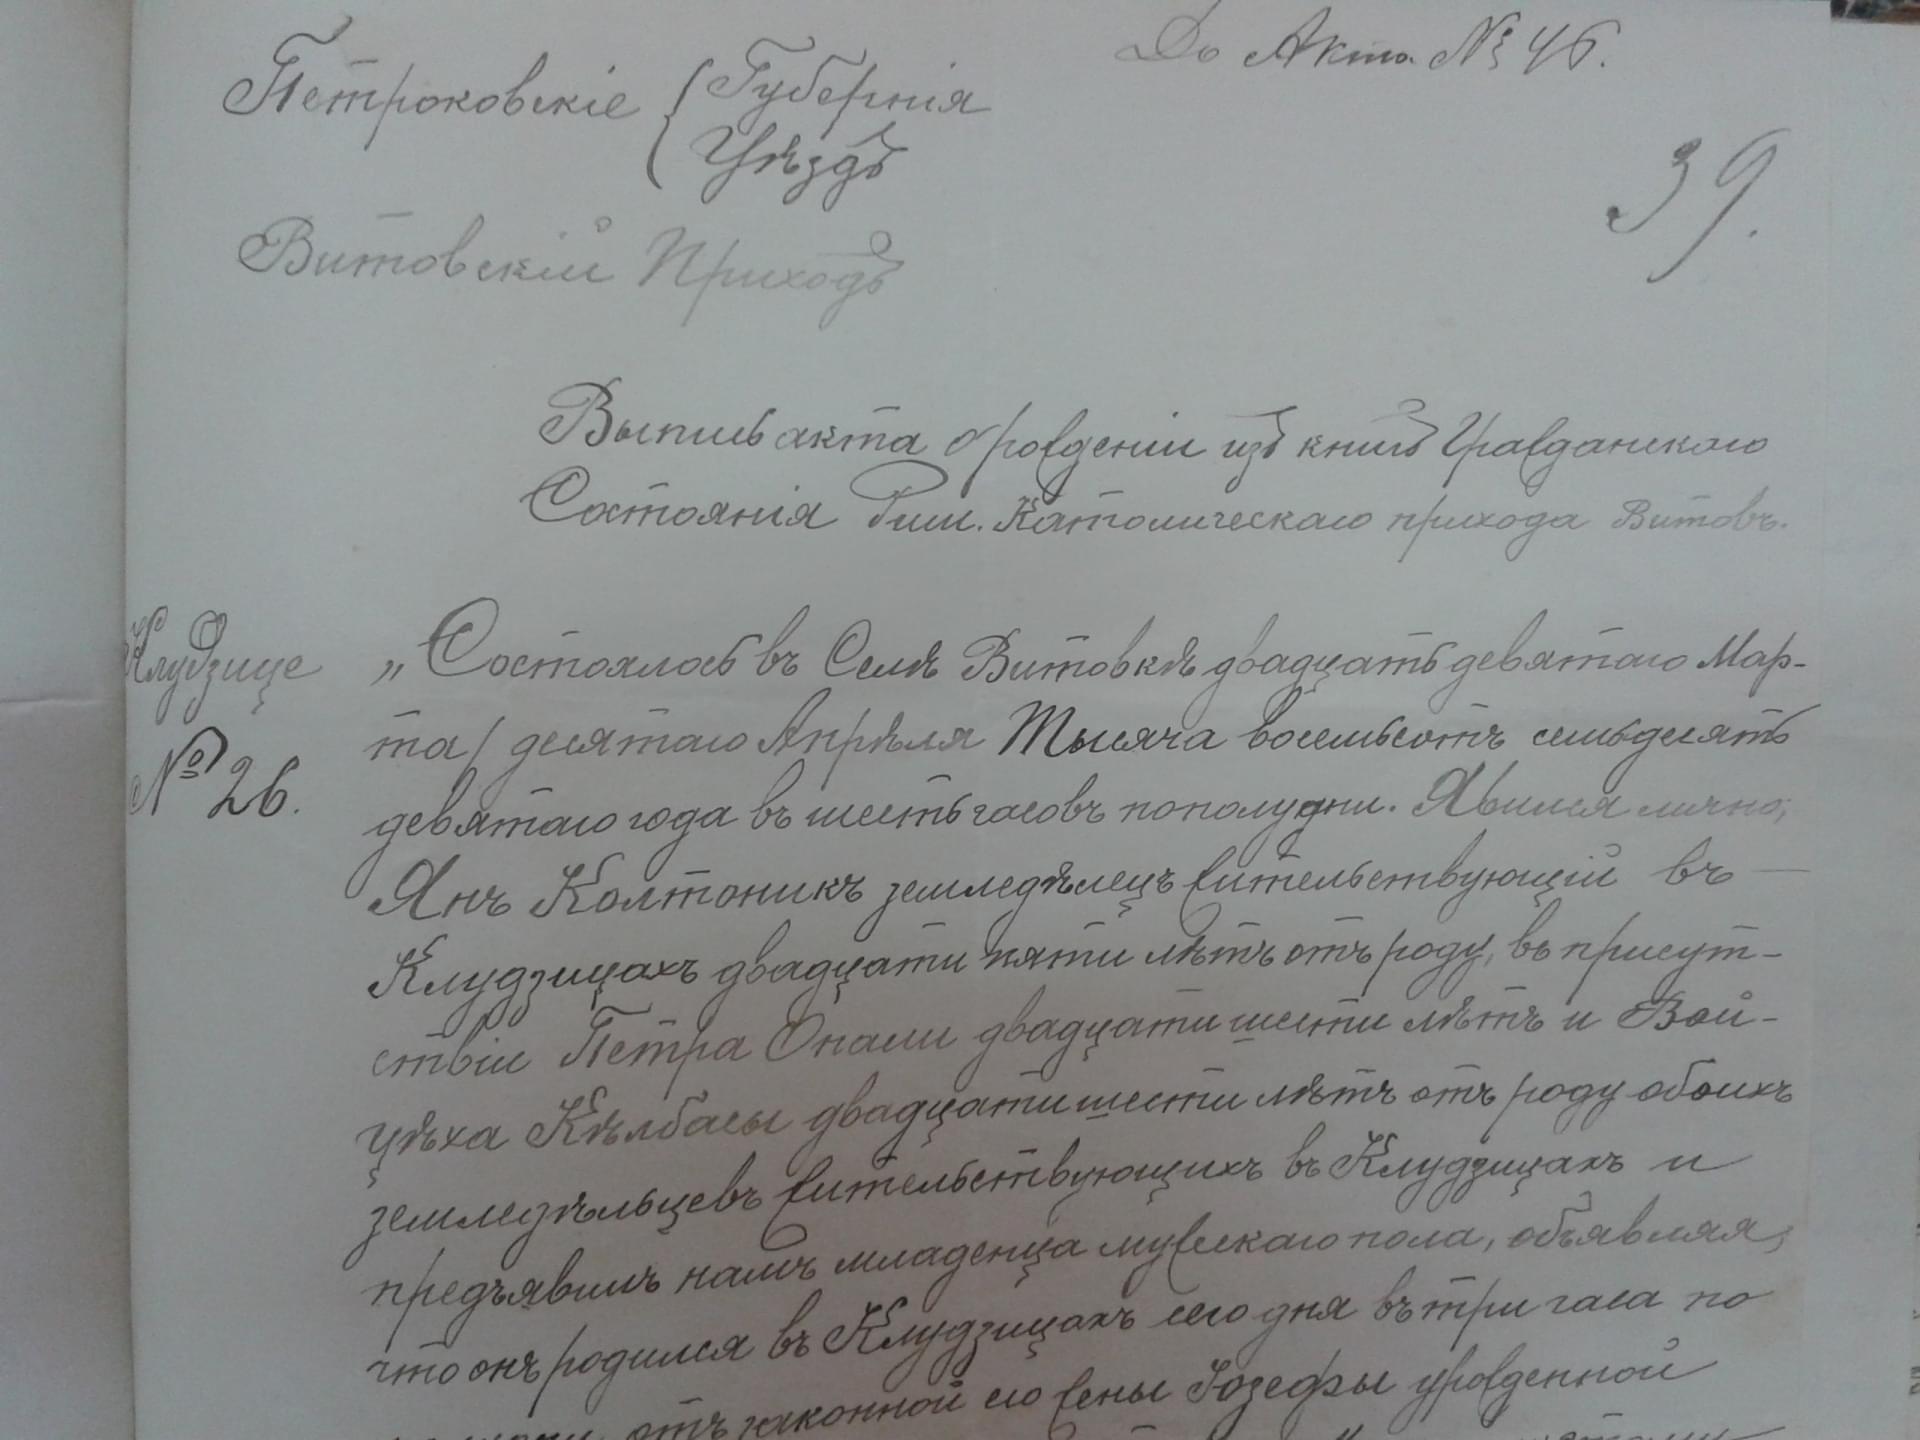 До Акта № 46.
Петроковскіе { Губернія
Уѣздъ
39.
Витовскій Приходъ
Выпись акта о рожденіи изъ книгъ Гражданскаго
Состоянія Рим. Католическаго прихода Витовъ.
Клудзице
№ 26.
„Состоялось въ Селѣ Витовкѣ двадцать девятаго Мар-
та / десятаго Апрѣля Тысяча восемьсотъ семьдесятъ
девятаго года въ шесть часовъ пополудни. Явился лично,
Янъ Колтоникъ земледѣлецъ жительствующій въ —
Клудзицахъ двадцати пяти лѣтъ отъ роду, въ присут-
ствіи Петра Опали двадцати шести лѣтъ и Вой-
цѣха Кѣлбасы двадцати шести лѣтъ отъ роду обоихъ
земледѣльцевъ жительствующихъ въ Клудзицахъ и
предъявилъ намъ младенца мужескаго пола, объявляя,
что онъ родился въ Клудзицахъ сего дня въ три часа по
отъ законной его жены Іозефы урожденной